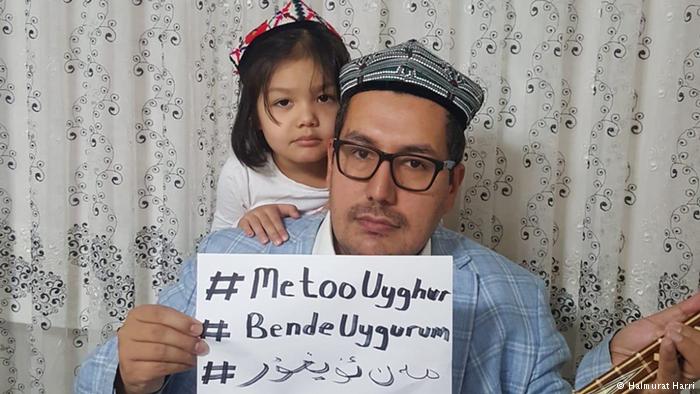 # MetooUyghur
# BendeUygurum
# مەن ئۇيغۇر
© Halmurat Harri